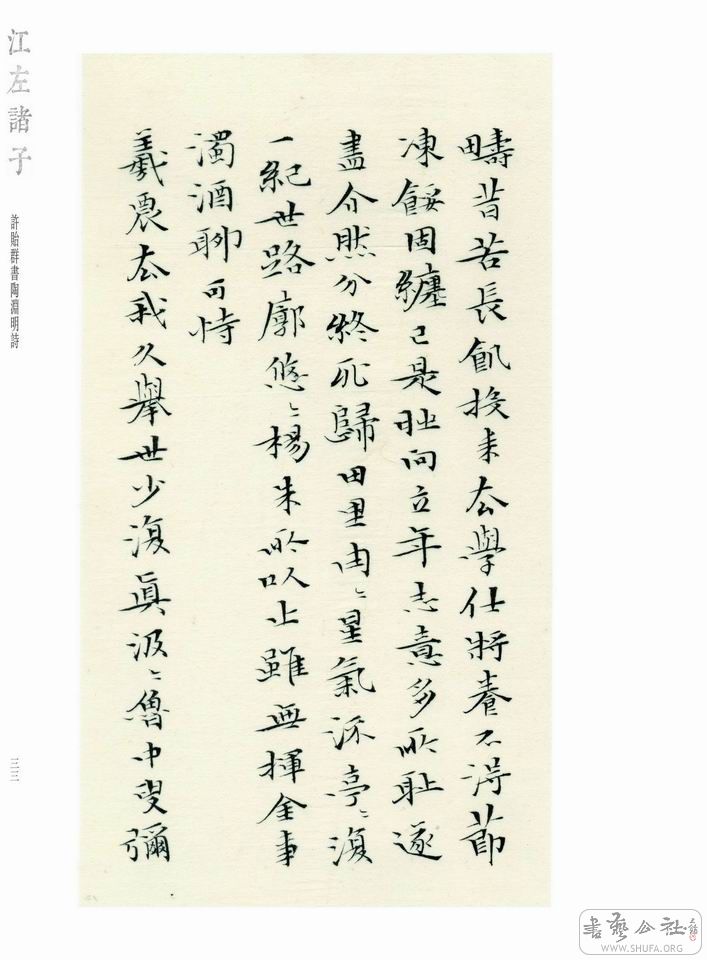 江左諸子
許貽群書陶淵明詩
三三
疇昔苦長飢投耒去學仕將養不得節
凍餒固纏己是時向立年志意多所恥遂
盡介然分終死歸田里冉〻星氣流亭〻復
一紀世路廓悠〻楊朱所以止雖無揮金事
濁酒聊可恃
羲農去我久舉世少復眞汲〻魯中叟彌
書藝公社
WWW.SHUFA.ORG